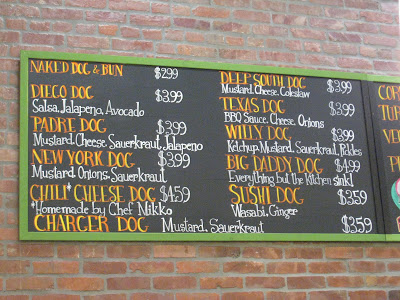 NAKED DOG & BUN $2.99
DIEGO DOG $3.99
Salsa, Jalapeno, Avocado
PADRE DOG $3.99
Mustard, Cheese, Sauerkraut, Jalapeno
NEW YORK DOG $3.99
Mustard, Onions, Sauerkraut
CHILI* CHEESE DOG $4.59
*Homemade by Chef Mikko
CHARGER DOG Mustard, Sauerkraut $3.59
DEEP SOUTH DOG $3.99
Mustard, Cheese, Coleslaw
TEXAS DOG $3.99
BBQ Sauce, Cheese, Onions
WILLY DOG $3.99
Ketchup, Mustard, Sauerkraut, Pickles
BIG DADDY DOG $4.99
Everything but the Kitchen sink!
SUSHI DOG $3.59
Wasabi, Ginger
COR
TUR
VEG